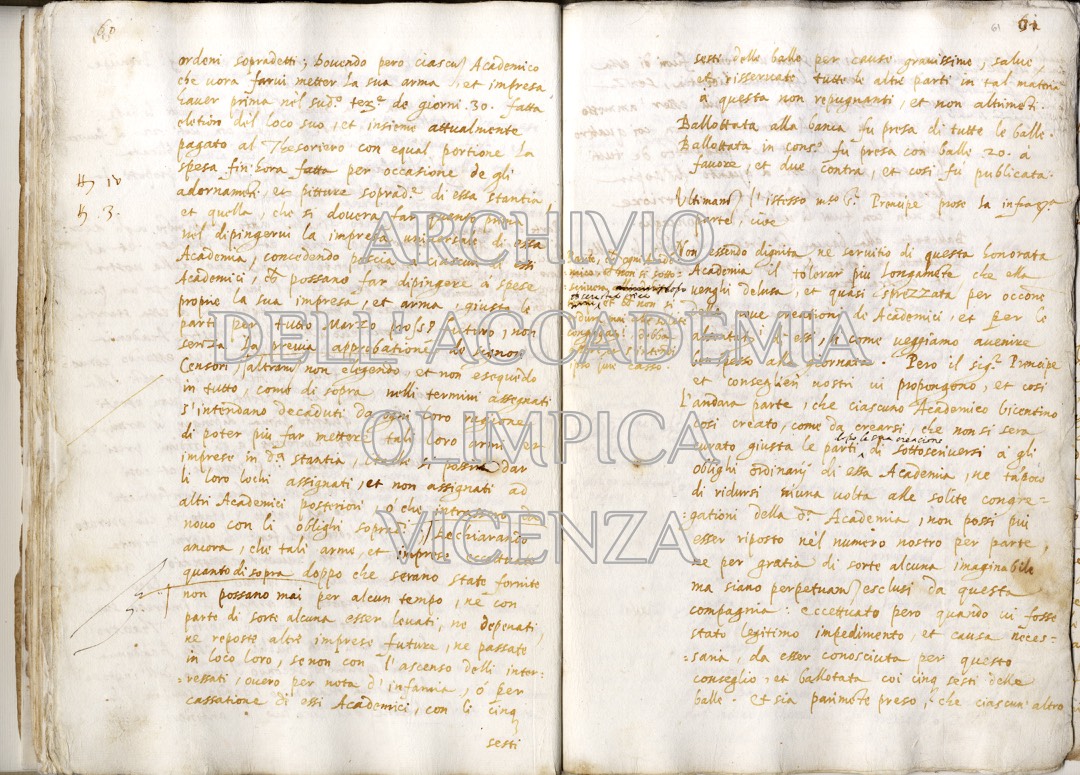 60
ordeni sopradetti; dovendo però ciascun Academico
che vorà farvi metter la sua arma, et impresa
haver prima nel sud.º ter.º de giorni .30. fatta
eletion del loco suo, et insieme attualmente
pagato al Thesoriero con equal portione la
spesa fin hora fatta per occasione de gli
adornamēti, et pitture soprad.e di essa stantia
et quella, che si doverà far
nel dipingervi la impresa universale di essa
Academia, concedendo poscia
Academici, possano far dipingere a spese
proprie la sua impresa, et arma, giusta le
parti per tutto Marzo pross.º futuro, non
senza la previa approbatione de signori
Censori, altram.
in tutto, come di sopra nelli termini assegnati
s'intendano decaduti da ogni loro ragione
di poter più far metter tali loro armi et
imprese in d.a stantia, dar
li loro lochi assignati, et non assignati ad
altri Academici posteriori ò che intrassero di
novo con li oblighi sopred.i Dechiarando
ancora, che tali armi, et imprese eccettuato
quanto di sopra doppo che serano state fornite
non possano mai per alcun tempo, ne con
parte di sorte alcuna esser levati, ne depenati,
ne reposte altre imprese future, ne passate
in loco loro, se non con l'ascenso delli inter-
=ressati, overo per nota d'infamia, ò per
cassatione di essi Academici, con li cinq
sesti
61
61
sesti delle balle per cause gravissime, salve
et risservate tutte le altre parti in tal materia
à questa non repugnanti, et non altrimēti.
Ballottata alla banca fu presa di tutte le balle.
Ballottata in cons.º fu presa con balle 20. à
favore, et due contra, et così fù publicata.
Ultimam. l'istesso Principe prose la infras.ta
parte, cioè
Non essendo dignità, ne servitio di questa honorata
Academia il tolerar più longamēte che ella
venghi delusa, et quasi sprezzata per occōne
delle nove creationi di Academici, et per le
di essi, si come veggiamo avenire
ben spesso alla giornata. Però il sig.r Principe
et conseglieri nostri vi propongono, et così
L'andarà parte, che ciascuno Academico vicentino
così creato, come da crearsi, che non si serà
doppo la sua creatione
curato giusta le parti di sottoscriversi à gli
oblighi ordinarij di essa Academia, ne tāpoco
di ridursi niuna volta alle solite congre=
=gationi della d.a Academia, non possi più
esser riposto nel numero nostro per parte,
ne per gratia di sorte alcuna imaginabile
ma siano perpetuam. esclusi da questa
compagnia: eccettuato però quando vi fosse
stato legitimo impedimento, et causa neces=
=saria, da esser conosciuta per questo
conseglio, et ballotata coi cinq sesti delle
balle. et sia parimēte preso, che ciascun'altro
ARCHIVIO
DELL'ACCADEMIA
OLIMPICA
VICENZA